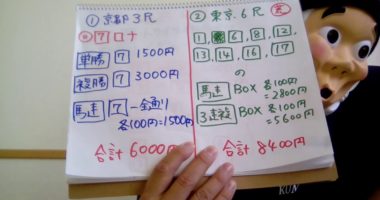 ① 京都 3R
◎ 7
単勝 7 1500円
複勝 7 3000円
馬連 7 ー全通り
各100円=1500円
合計 6000円
② 東京.6R
1, 6, 8, 12,
13, 14, 16, 17
の
馬連 BOX 各100円
=2800円
3連複 BOX 各100円
=5600円
合計 8400円